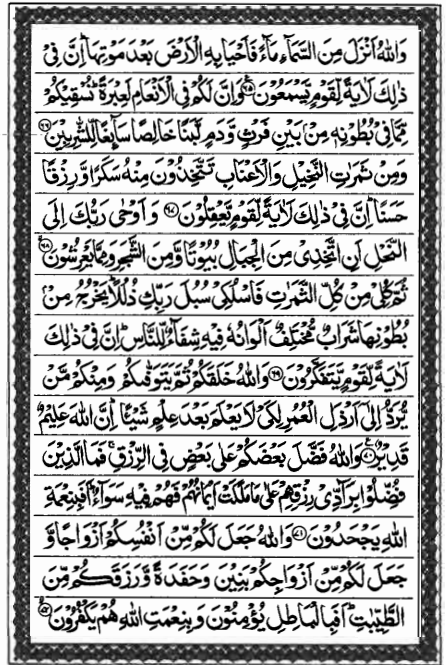 وَاللّٰهُ اَنْزَلَ مِنَ السَّمَآءِ مَآءً فَاَحْيَا بِهِ الْاَرْضَ بَعْدَ مَوْتِهَا ؕ اِنَّ فِيْ
ذٰلِكَ لَاٰيَةً لِّقَوْمٍ يَّسْمَعُوْنَ ﴿۶۵﴾ وَاِنَّ لَكُمْ فِي الْاَنْعَامِ لَعِبْرَةً ؕ نُسْقِيْكُمْ
مِّمَّا فِيْ بُطُوْنِهٖ مِنْۢ بَيْنِ فَرْثٍ وَّدَمٍ لَّبَنًا خَالِصًا سَآئِغًا لِّلشّٰرِبِيْنَ ﴿۶۶﴾
وَمِنْ ثَمَرٰتِ النَّخِيْلِ وَالْاَعْنَابِ تَتَّخِذُوْنَ مِنْهُ سَكَرًا وَّرِزْقًا
حَسَنًا ؕ اِنَّ فِيْ ذٰلِكَ لَاٰيَةً لِّقَوْمٍ يَّعْقِلُوْنَ ﴿۶۷﴾ وَاَوْحٰى رَبُّكَ اِلَى
النَّحْلِ اَنِ اتَّخِذِيْ مِنَ الْجِبَالِ بُيُوْتًا وَّمِنَ الشَّجَرِ وَمِمَّا يَعْرِشُوْنَ ﴿۶۸﴾
ثُمَّ كُلِيْ مِنْ كُلِّ الثَّمَرٰتِ فَاسْلُكِيْ سُبُلَ رَبِّكِ ذُلُلًا ؕ يَخْرُجُ مِنْۢ
بُطُوْنِهَا شَرَابٌ مُّخْتَلِفٌ اَلْوَانُهٗ فِيْهِ شِفَآءٌ لِّلنَّاسِ ؕ اِنَّ فِيْ ذٰلِكَ
لَاٰيَةً لِّقَوْمٍ يَّتَفَكَّرُوْنَ ﴿۶۹﴾ وَاللّٰهُ خَلَقَكُمْ ثُمَّ يَتَوَفّٰىكُمْ وَمِنْكُمْ مَّنْ
يُّرَدُّ اِلٰۤى اَرْذَلِ الْعُمُرِ لِكَيْ لَا يَعْلَمَ بَعْدَ عِلْمٍ شَيْـًٔا ؕ اِنَّ اللّٰهَ عَلِيْمٌ
قَدِيْرٌ ﴿۷۰﴾ وَاللّٰهُ فَضَّلَ بَعْضَكُمْ عَلٰى بَعْضٍ فِي الرِّزْقِ ۚ فَمَا الَّذِيْنَ
فُضِّلُوْا بِرَآدِّيْ رِزْقِهِمْ عَلٰى مَا مَلَكَتْ اَيْمَانُهُمْ فَهُمْ فِيْهِ سَوَآءٌ ؕ اَفَبِنِعْمَةِ
اللّٰهِ يَجْحَدُوْنَ ﴿۷۱﴾ وَاللّٰهُ جَعَلَ لَكُمْ مِّنْ اَنْفُسِكُمْ اَزْوَاجًا وَّ
جَعَلَ لَكُمْ مِّنْ اَزْوَاجِكُمْ بَنِيْنَ وَحَفَدَةً وَّرَزَقَكُمْ مِّنَ
الطَّيِّبٰتِ ؕ اَفَبِالْبَاطِلِ يُؤْمِنُوْنَ وَبِنِعْمَتِ اللّٰهِ هُمْ يَكْفُرُوْنَ ﴿۷۲﴾